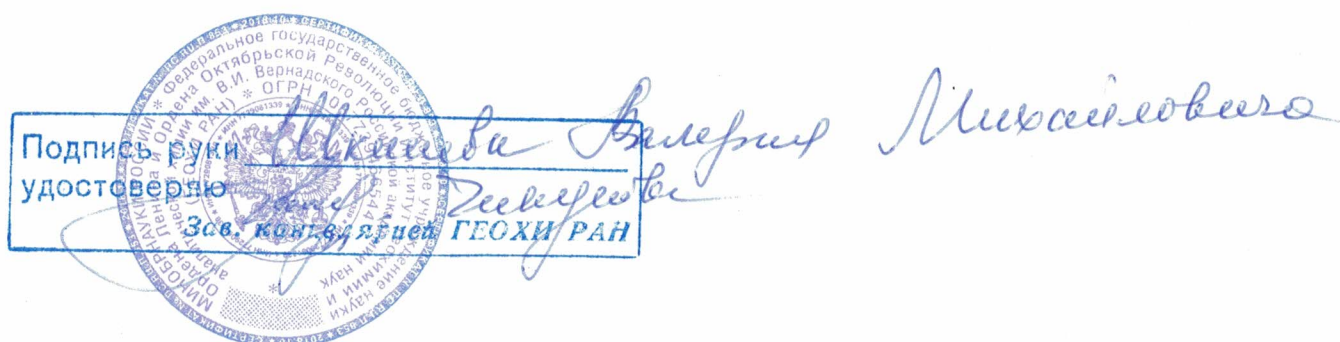 Подпись руки Шкинева Валерия Михайловича
удостоверяю
Зав. канцелярией ГЕОХИ РАН
МИНОБРНАУКИ РОССИИ * Федеральное государственное бюджетное учреждение науки
Ордена Ленина и Ордена Октябрьской Революции Институт геохимии и
аналитической химии им. В.И. Вернадского Российской академии наук
(ГЕОХИ РАН) * ОГРН